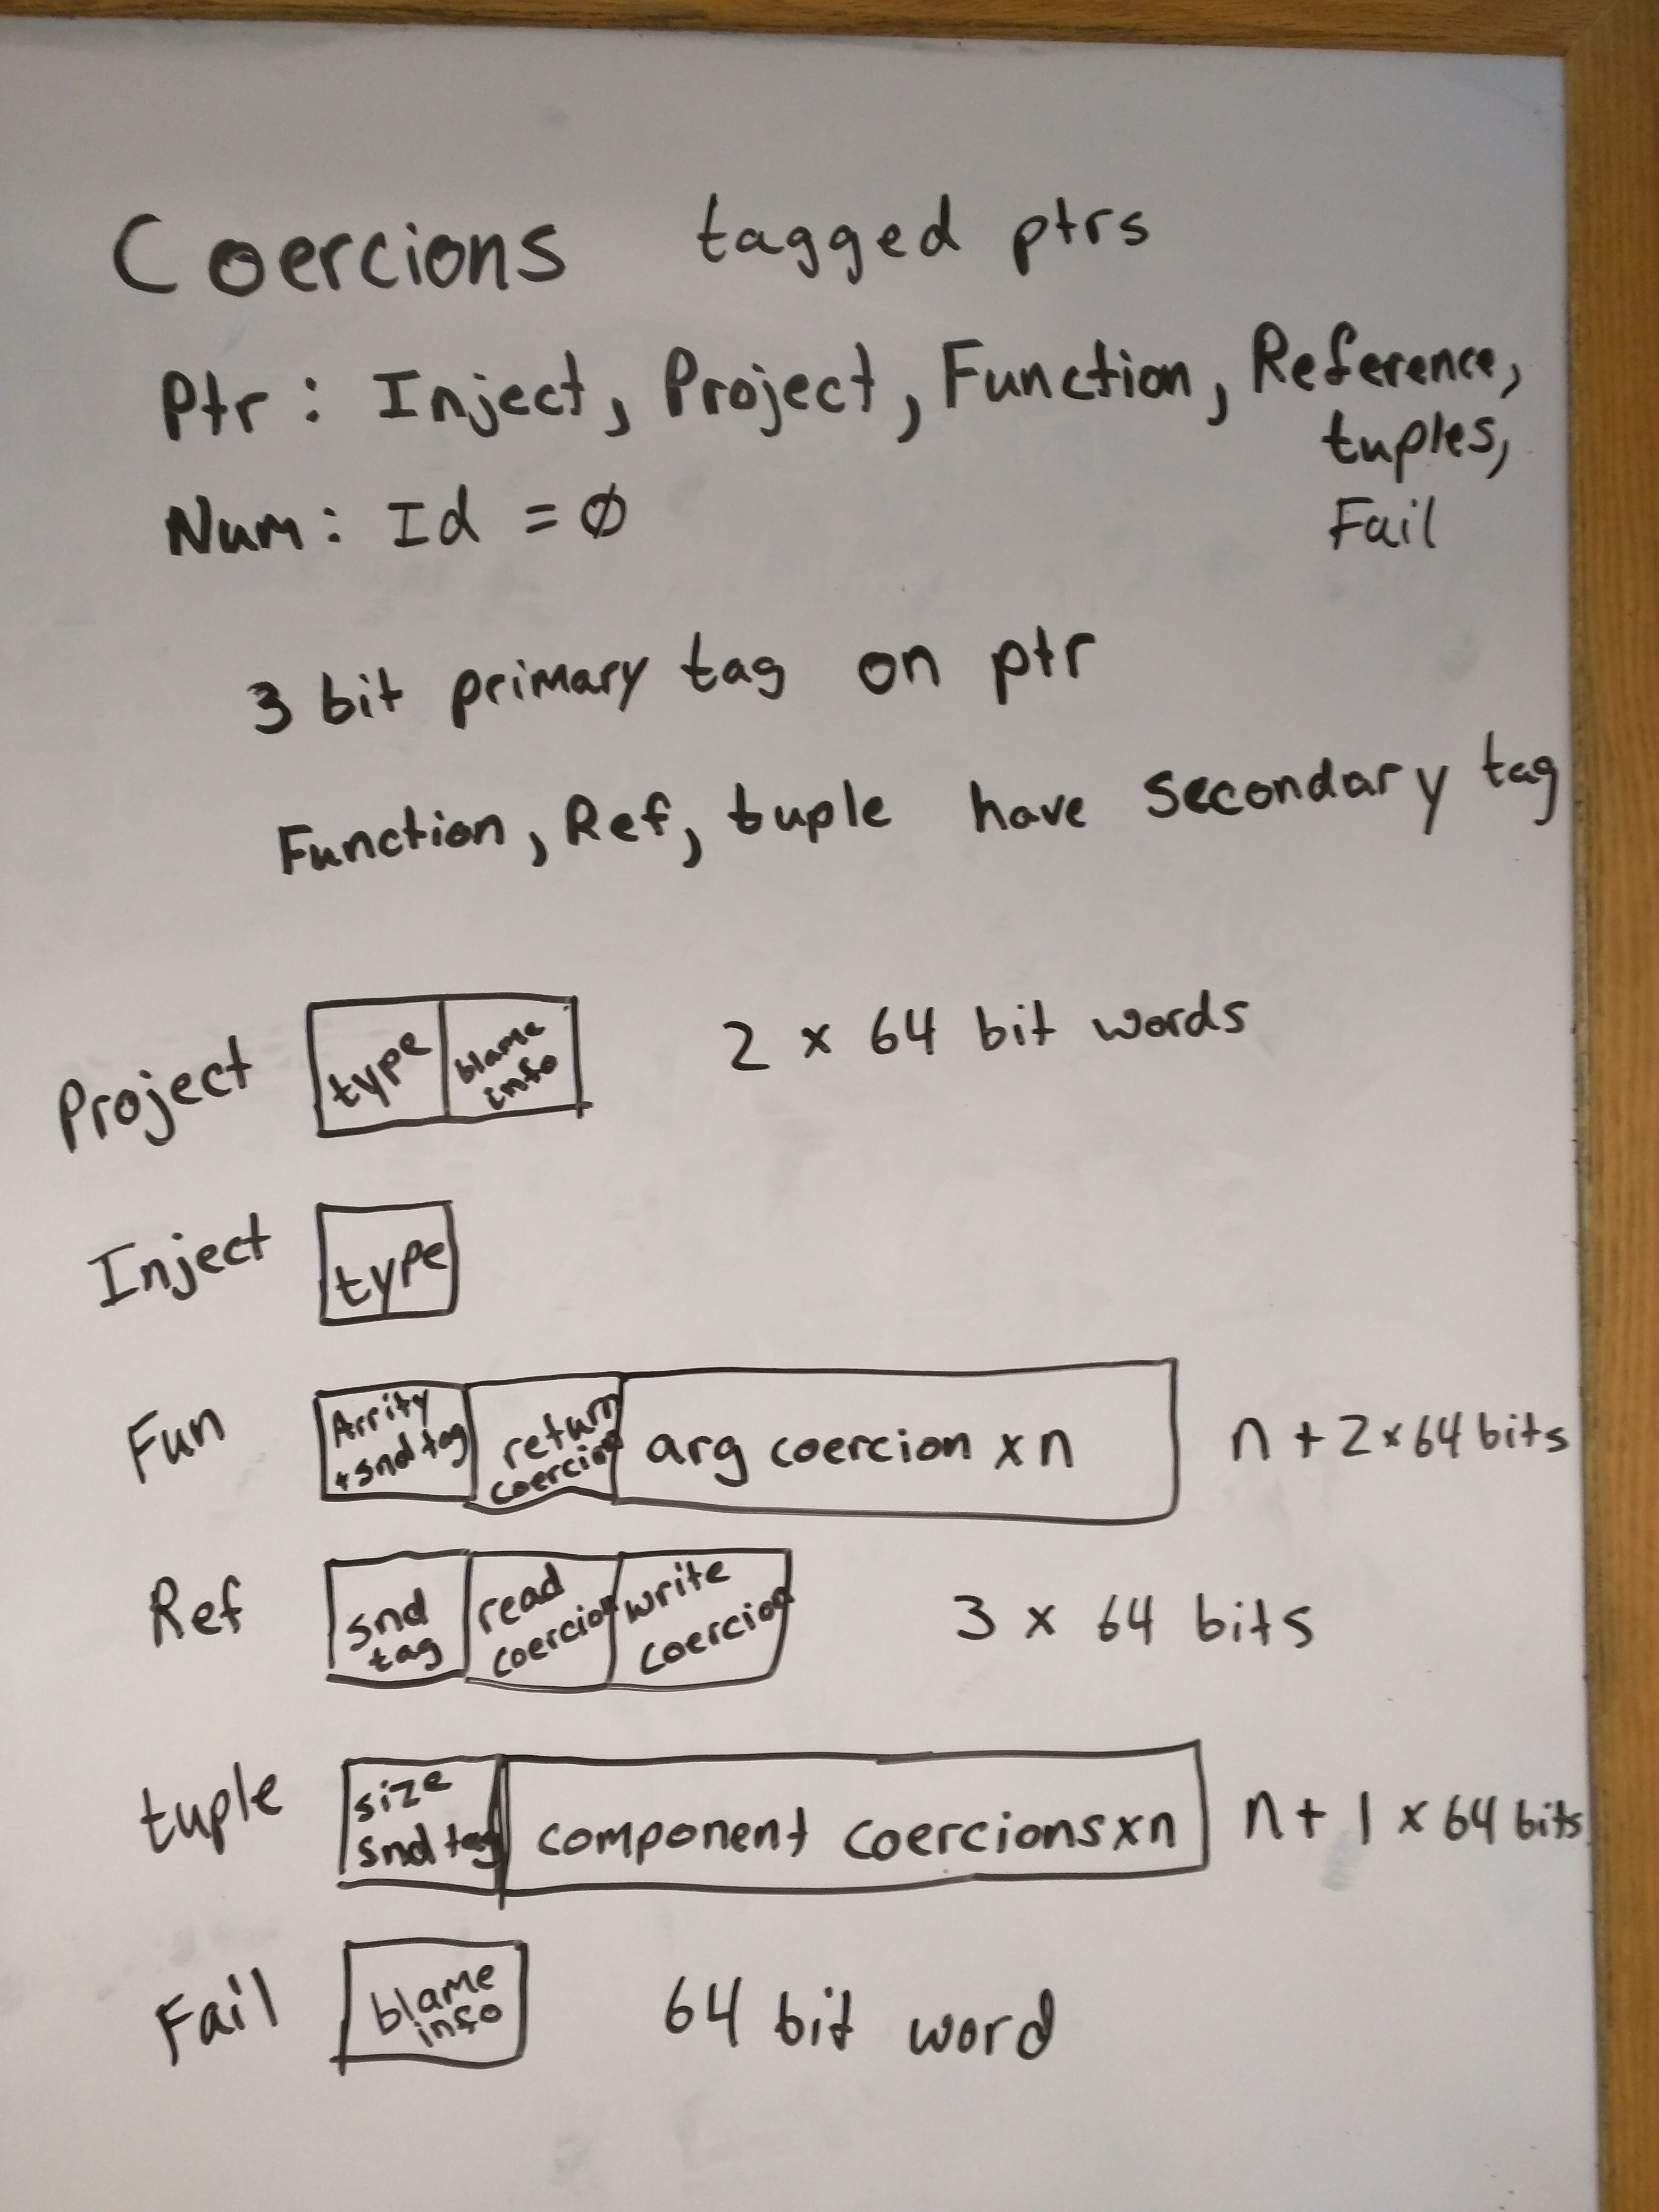 Coercions tagged ptrs
Ptr: Inject, Project, Function, Reference,
tuples,
Fail
Num: Id = ∅
3 bit primary tag on ptr
Function, Ref, tuple have secondary tag
Project type blame info 2 x 64 bit words
Inject type
Fun Arrity + snd tag return coercion arg coercion x n n + 2 x 64 bits
Ref snd tag read coercion write coercion 3 x 64 bits
tuple size snd tag component coercions x n n + 1 x 64 bits
Fail blame info 64 bit word